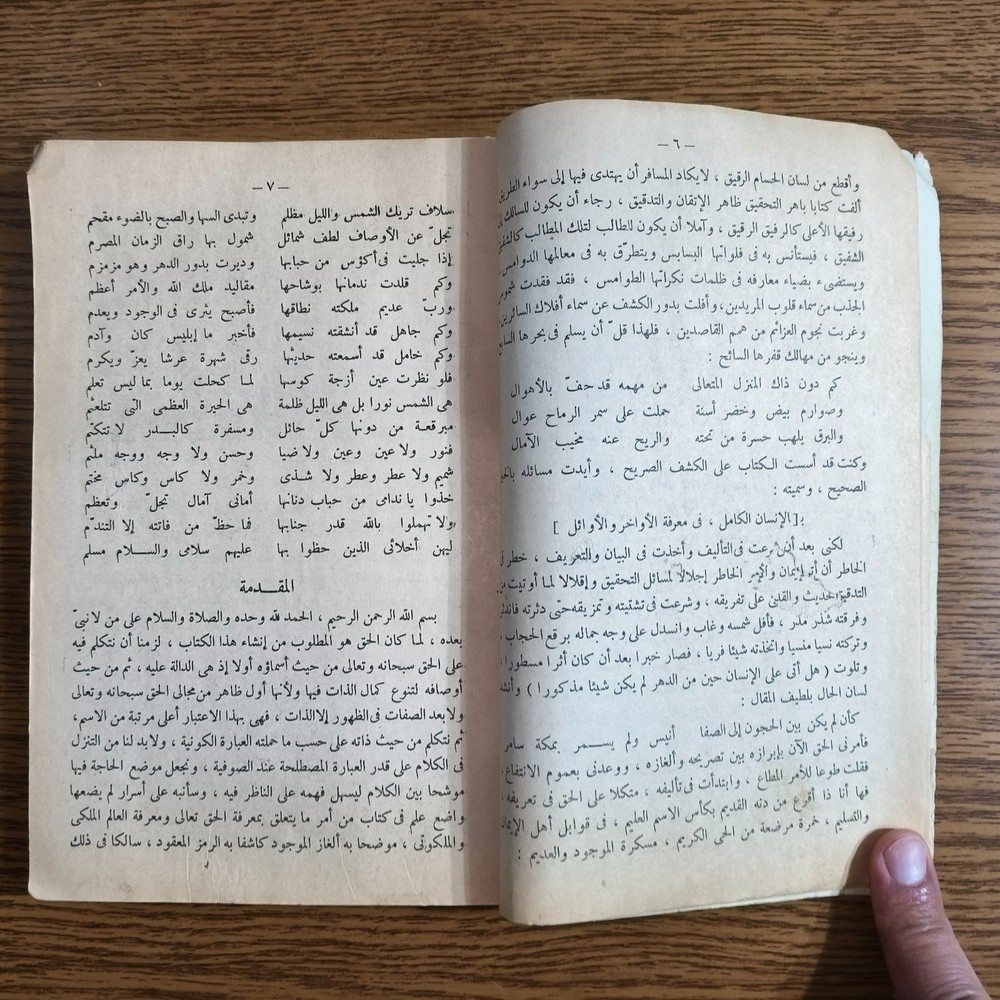 — ٦ —
وأقطع من لسان الحسام الرقيق ، لا يكاد المسافر أن يهتدى فيها إلى سواء الطريق
ألفت كتابا باهر التحقيق ظاهر الإتقان والتدقيق ، رجاء أن يكون للسالك
رفيقها الأعلى كالرفيق الرقيق ، وآملا أن يكون للطالب لتلك المطالب كالشفيق
الشفيق ، فيستأنس به فى فلواتها البسابس ويتطرّق به فى معالمها الدوامس
ويستضىء بضياء معارفه فى ظلمات نكراتها الطوامس ، فقد فقدت شموس
الجذب من سماء قلوب المريدين، وأفلت بدور الكشف عن سماء أفلاك السائرين
وغربت نجوم العزائم من همم القاصدين ، فلهذا قلّ أن يسلم فى بحرها السابح
وينجو من مهالك قفرها السائح :
كم دون ذاك المنزل المتعالى من مهمه قد حفّ بالأهوال
وصوارم بيض وخضر أسنة حملت على سمر الرماح عوال
والبرق يلهب حسرة من تحته والريح عنه مخيب الآمال
وكنت قد أسست الكتاب على الكشف الصريح ، وأيدت مسائله بالخبر
الصحيح ، وسميته :
بـ[الإنسان الكامل ، فى معرفة الأواخر والأوائل ]
لكنى بعد أن شرعت فى التأليف وأخذت فى البيان والتعريف ، خطر فى
الخاطر أن أترك الخاطر إجلالا لمسائل التحقيق وإقلالا لما أوتيت من
التدقيق على تفريقه ، وشرعت فى تشتيته وتمزيقه حتى دثرته فاندثر
وفرقته شذر مذر ، فأفل شمسه وغاب وانسدل على وجه جماله برقع الحجاب ،
وتركته نسيا منسيا واتخذته شيئا فريا ، فصار خبرا بعد أن كان أثرا مسطورا ،
وتلوت ( هل أتى على الإنسان حين من الدهر لم يكن شيئا مذكورا ) وأنشد
لسان الحال بلطيف المقال :
كأن لم يكن بين الحجون إلى الصفا أنيس ولم يســمر بمكة سامر
فأمرنى الحق الآن بإبرازه بين تصريحه وألغازه ، ووعدنى بعموم الانتفاع ،
فقلت طوعا للأمر المطاع ، وابتدأت فى تأليفه ، متكلا على الحق فى تعريفه ،
فها أنا ذا أقرع من دنه القديم بكأس الاسم العليم ، فى قوابل أهل الإيمان
والتسليم ، خمرة مرضعة من الحى الكريم ، مسكرة الموجود والعديم :
— ٧ —
سلاف تريك الشمس والليل مظلم وتبدى السها والصبح بالضوء مقحم
تجلّ عن الأوصاف لطف شمائل شمول بها راق الزمان المصرم
إذا جليت فى أكؤس من حبابها وديرت بدور الدهر وهو مزمزم
وكم قلدت ندمانها بوشاحها مقاليد ملك الله والأمر أعظم
وربّ عديم ملكته نطاقها فأصبح يثرى فى الوجود ويعدم
وكم جاهل قد أنشقته نسيمها فأخبر ما إبليس كان وآدم
وكم خامل قد أسمعته حديثها رقى شهرة عرشا يعزّ ويكرم
فلو نظرت عين أزجة كوسها لما كحلت يوما بما ليس تعلم
هى الشمس نورا بل هى الليل ظلمة هى الحيرة العظمى التى تتلعثم
مبرقعة من دونها كلّ حائل ومسفرة كالبــدر لا تتكتم
فنور ولا عين وعين ولا ضيا وحسن ولا وجه ووجه ملثم
شميم ولا عطر وعطر ولا شــذى وخمر ولا كاس وكاس مختم
خذوا يا ندامى من حباب دنانها أمانى آمال تجلّ وتعظم
ولا تهملوا بالله قدر جنابها فما حظّ من فاتته إلا التندّم
ليهن أخلائى الذين حظوا بها عليهم سلامى والســلام مسلم
المقــدمة
بسم الله الرحمن الرحيم ، الحمد لله وحده والصلاة والسلام على من لا نبىّ
بعده ، لما كان الحق هو المطلوب من إنشاء هذا الكتاب ، لزمنا أن نتكلم فيه
على الحق سبحانه وتعالى من حيث أسماؤه أولا إذ هى الدالة عليه ، ثم من حيث
أوصافه لتنوع كمال الذات فيها ولأنها أول ظاهر من مجالى الحق سبحانه وتعالى
ولا بعد الصفات فى الظهور إلا الذات ، فهى بهذا الاعتبار أعلى مرتبة من الاسم،
ثم نتكلم من حيث ذاته على حسب ما حملته العبارة الكونية ، ولا بد لنا من التنزل
فى الكلام على قدر العبارة المصطلحة عند الصوفية ، ونجعل موضع الحاجة فيها
موشحا بين الكلام ليسهل فهمه على الناظر فيه ، وسأنبه على أسرار لم يضعها
واضع علم فى كتاب من أمر ما يتعلق بمعرفة الحق تعالى ومعرفة العالم الملكى
والملكوتى ، موضحا به ألغاز الموجود كاشفا به الرمز المعقود ، سالكا فى ذلك